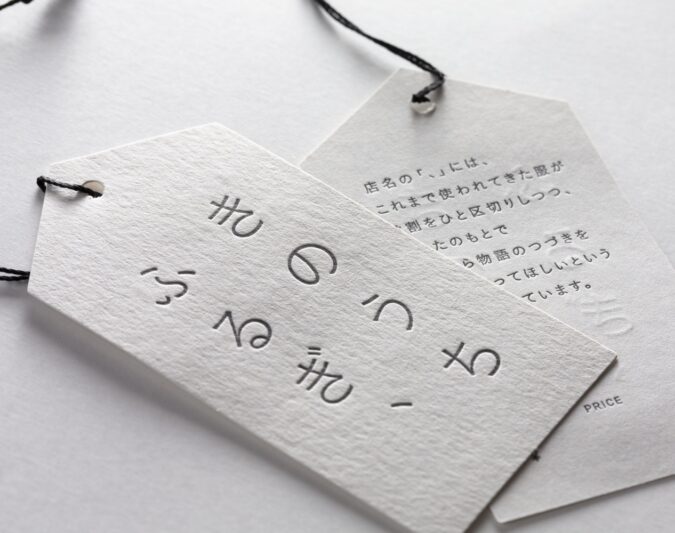 きのうち
ふるぎ、
店名の「、」には、
これまで使われてきた服が
割をひと区切りしつつ、
たのもとで
ら物語のつづきを
ってほしいという
ています。
PRICE